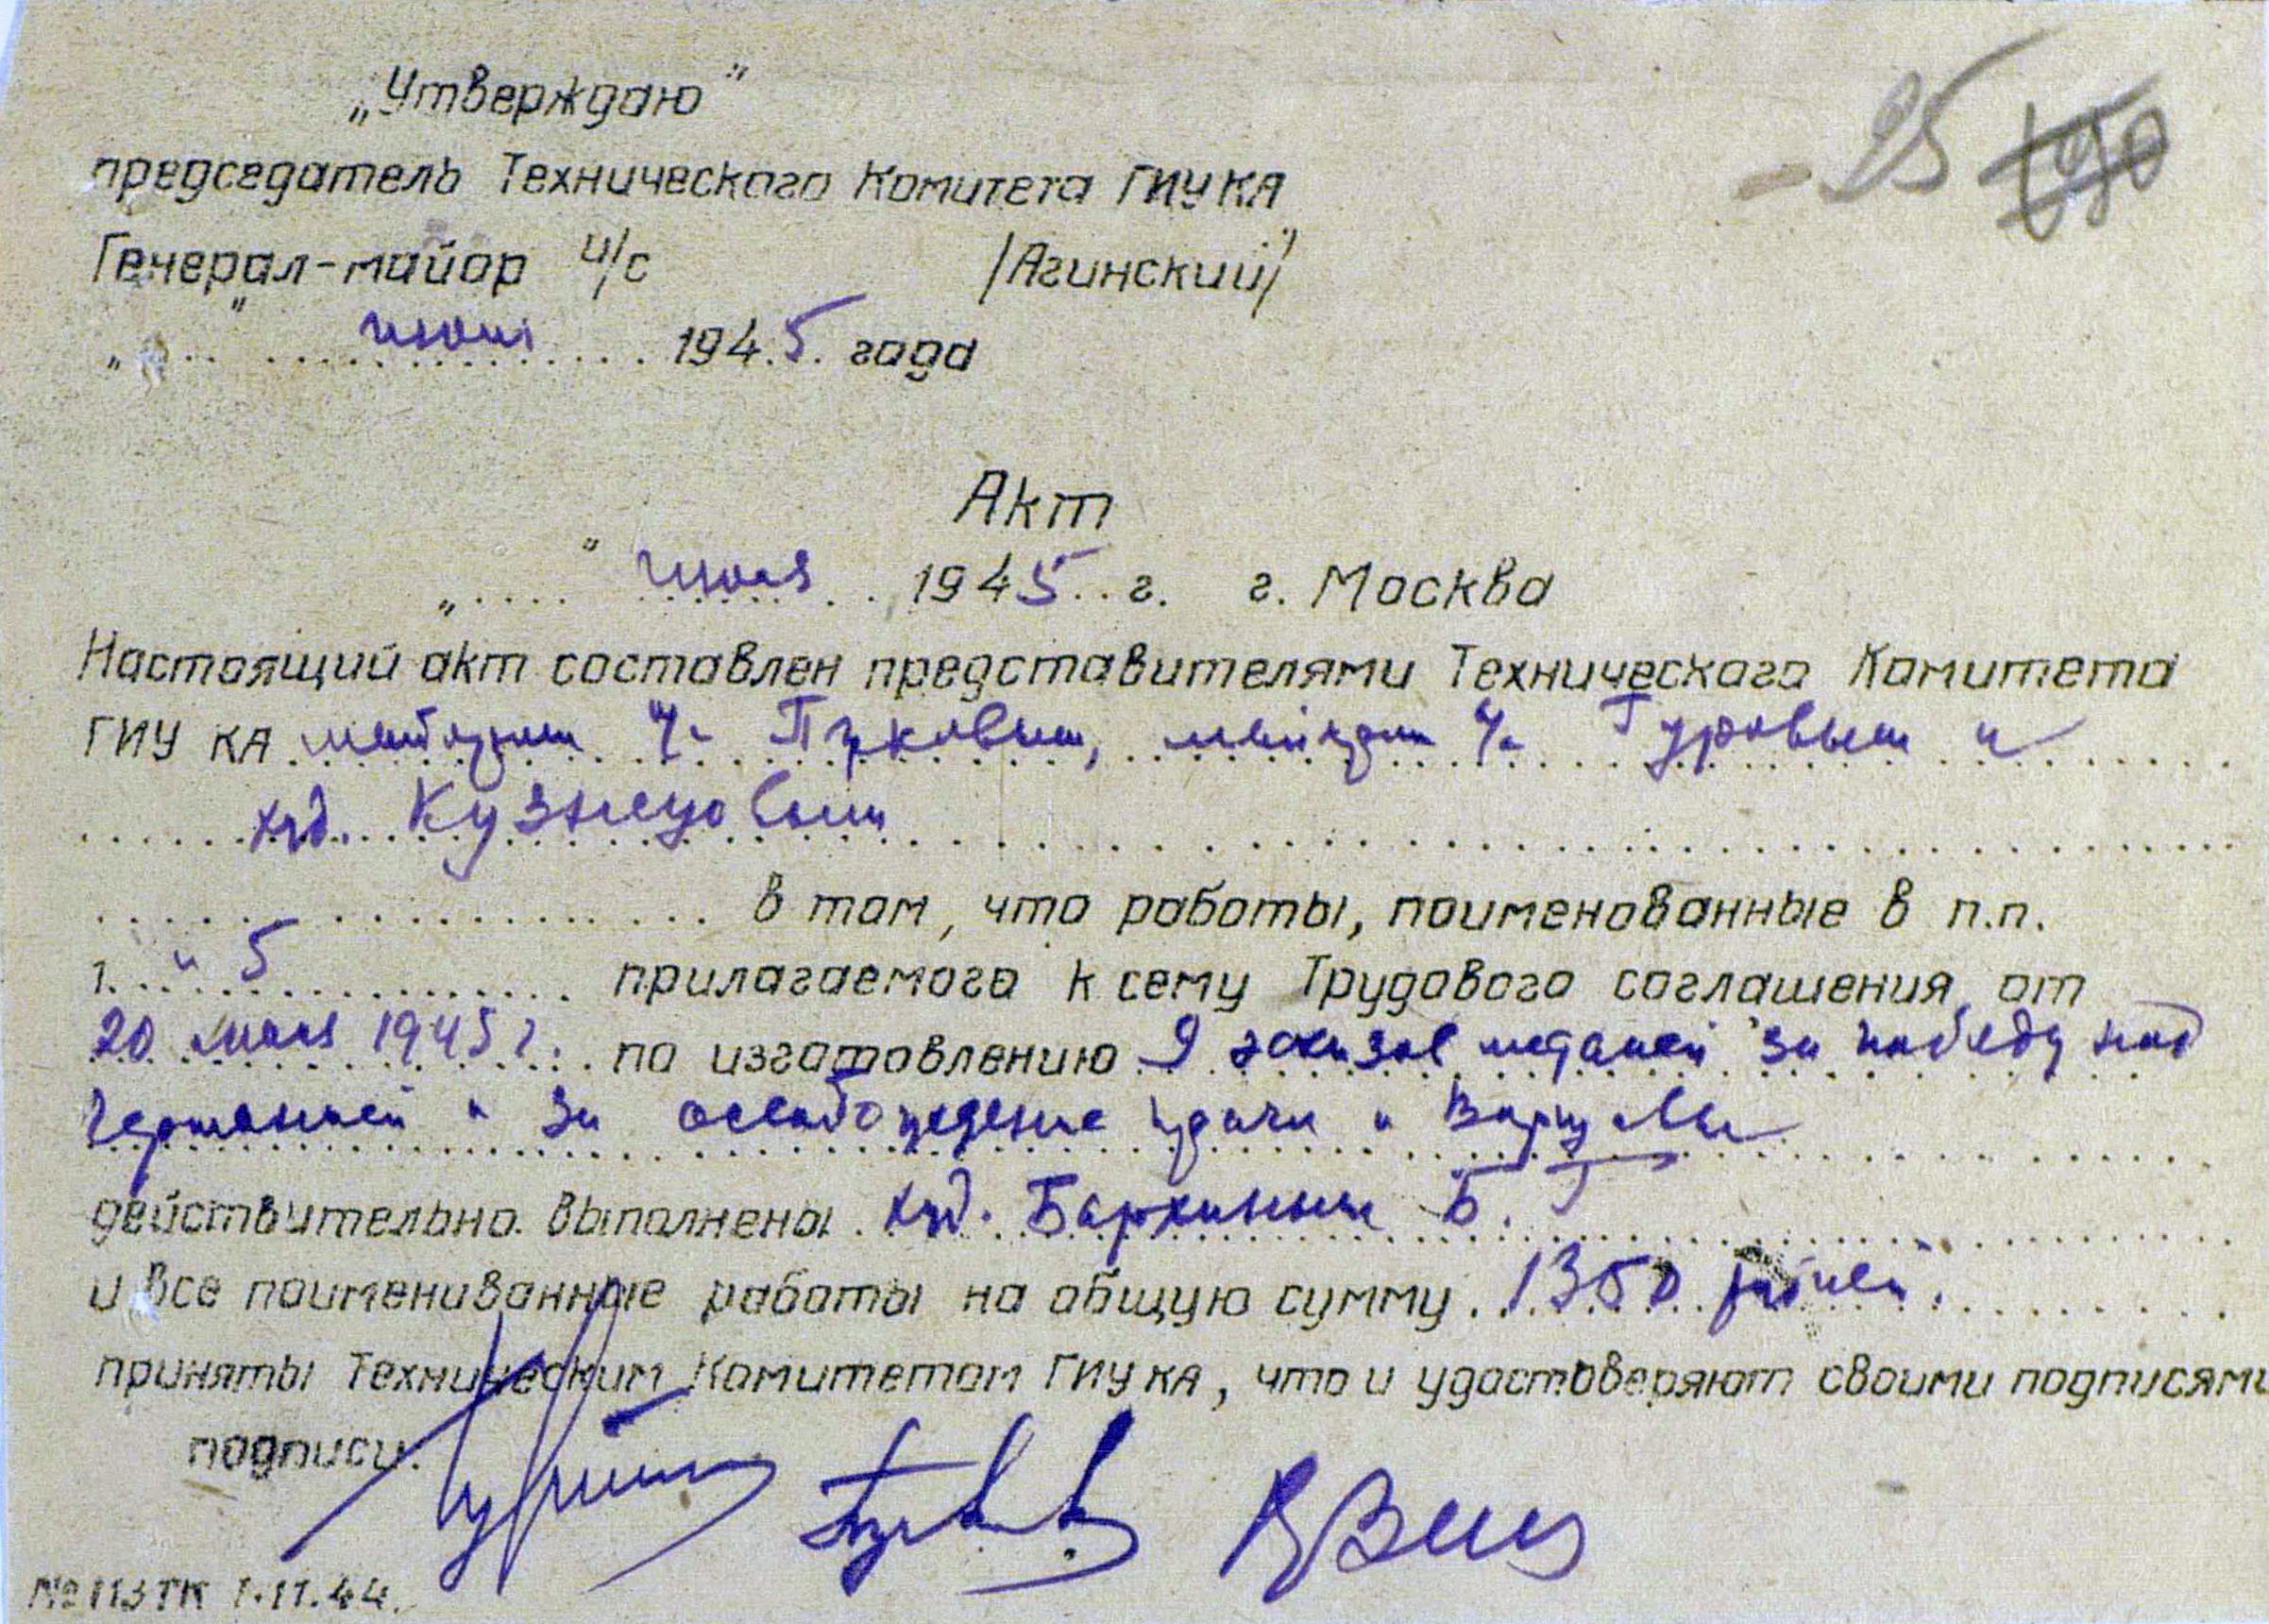 „Утверждаю"
- 25
председатель Технического Комитета ГИУ КА
Генерал-майор и/с /Агинский/
„ " июня 1945. года
Акт
„.... " июня 1945.. г. г. Москва
Настоящий акт составлен представителями Технического Комитета
ГИУ КА майором и/с Пуковым, майором и/с Гуровым и
худ. Кузнецовым
в том, что работы, поименованные в п.п.
1. и 5 прилагаемого к сему Трудового соглашения от
20 мая 1945 г. по изготовлению 9 эскизов медалей за победу над
Германией и за освобождение Праги и Варшавы
действительно выполнены худ. Бархиным Б. Г
и все поимениванные работы на общую сумму 1350 рублей.
приняты Техническим Комитетом ГИУ КА, что и удостоверяют своими подписями
подписи.
№113ТК 1.11.44.